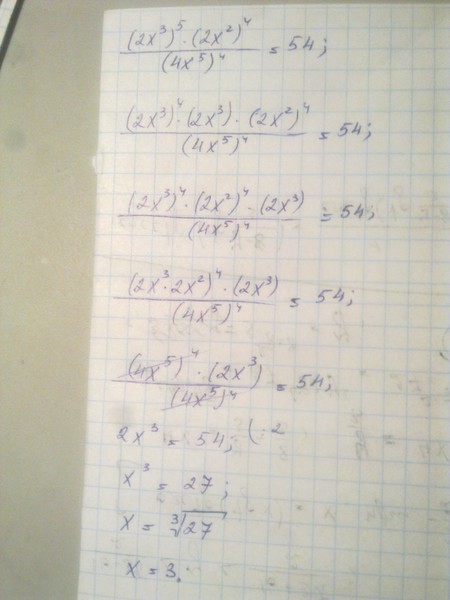 (2x³)⁵ · (2x²)⁴ / (4x⁵)⁴ = 54;
(2x³)⁴ · (2x³) · (2x²)⁴ / (4x⁵)⁴ = 54;
(2x³)⁴ · (2x²)⁴ · (2x³) / (4x⁵)⁴ = 54;
(2x³ · 2x²)⁴ · (2x³) / (4x⁵)⁴ = 54;
(4x⁵)⁴ · (2x³) / (4x⁵)⁴ = 54;
2x³ = 54; (: 2
x³ = 27;
x = ∛27
x = 3.